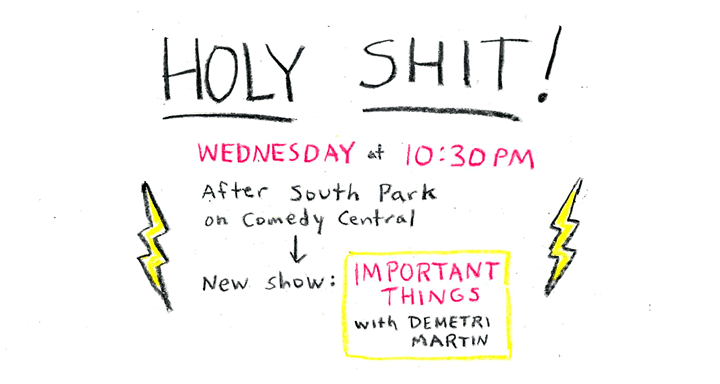 HOLY SHIT!
WEDNESDAY at 10:30PM
After South Park
on Comedy Central
New show: IMPORTANT
THINGS
with DEMETRI
MARTIN